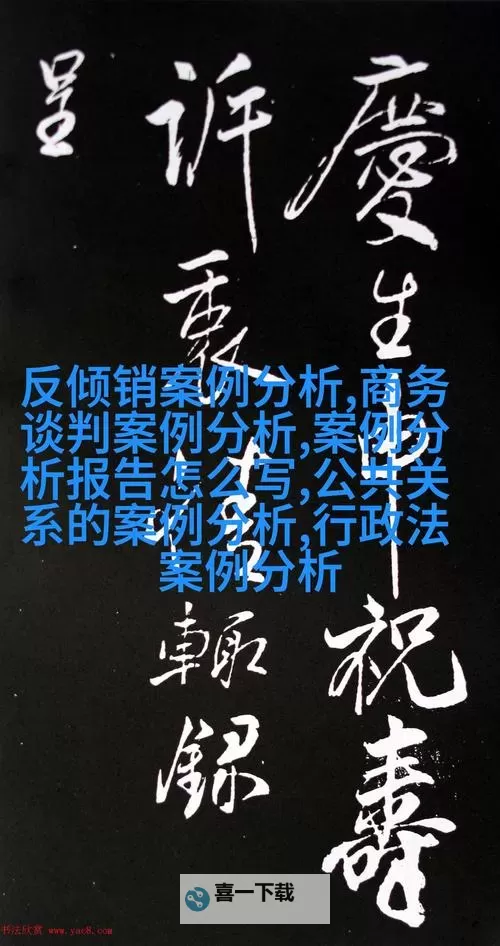 慶生申祝壽
訴衷情輙録
呈
反倾销案例分析,商务
谈判案例分析,案例分
析报告怎么写,公共关
系的案例分析,行政法
案例分析
喜一下载
书法欣赏 www.yac8.com